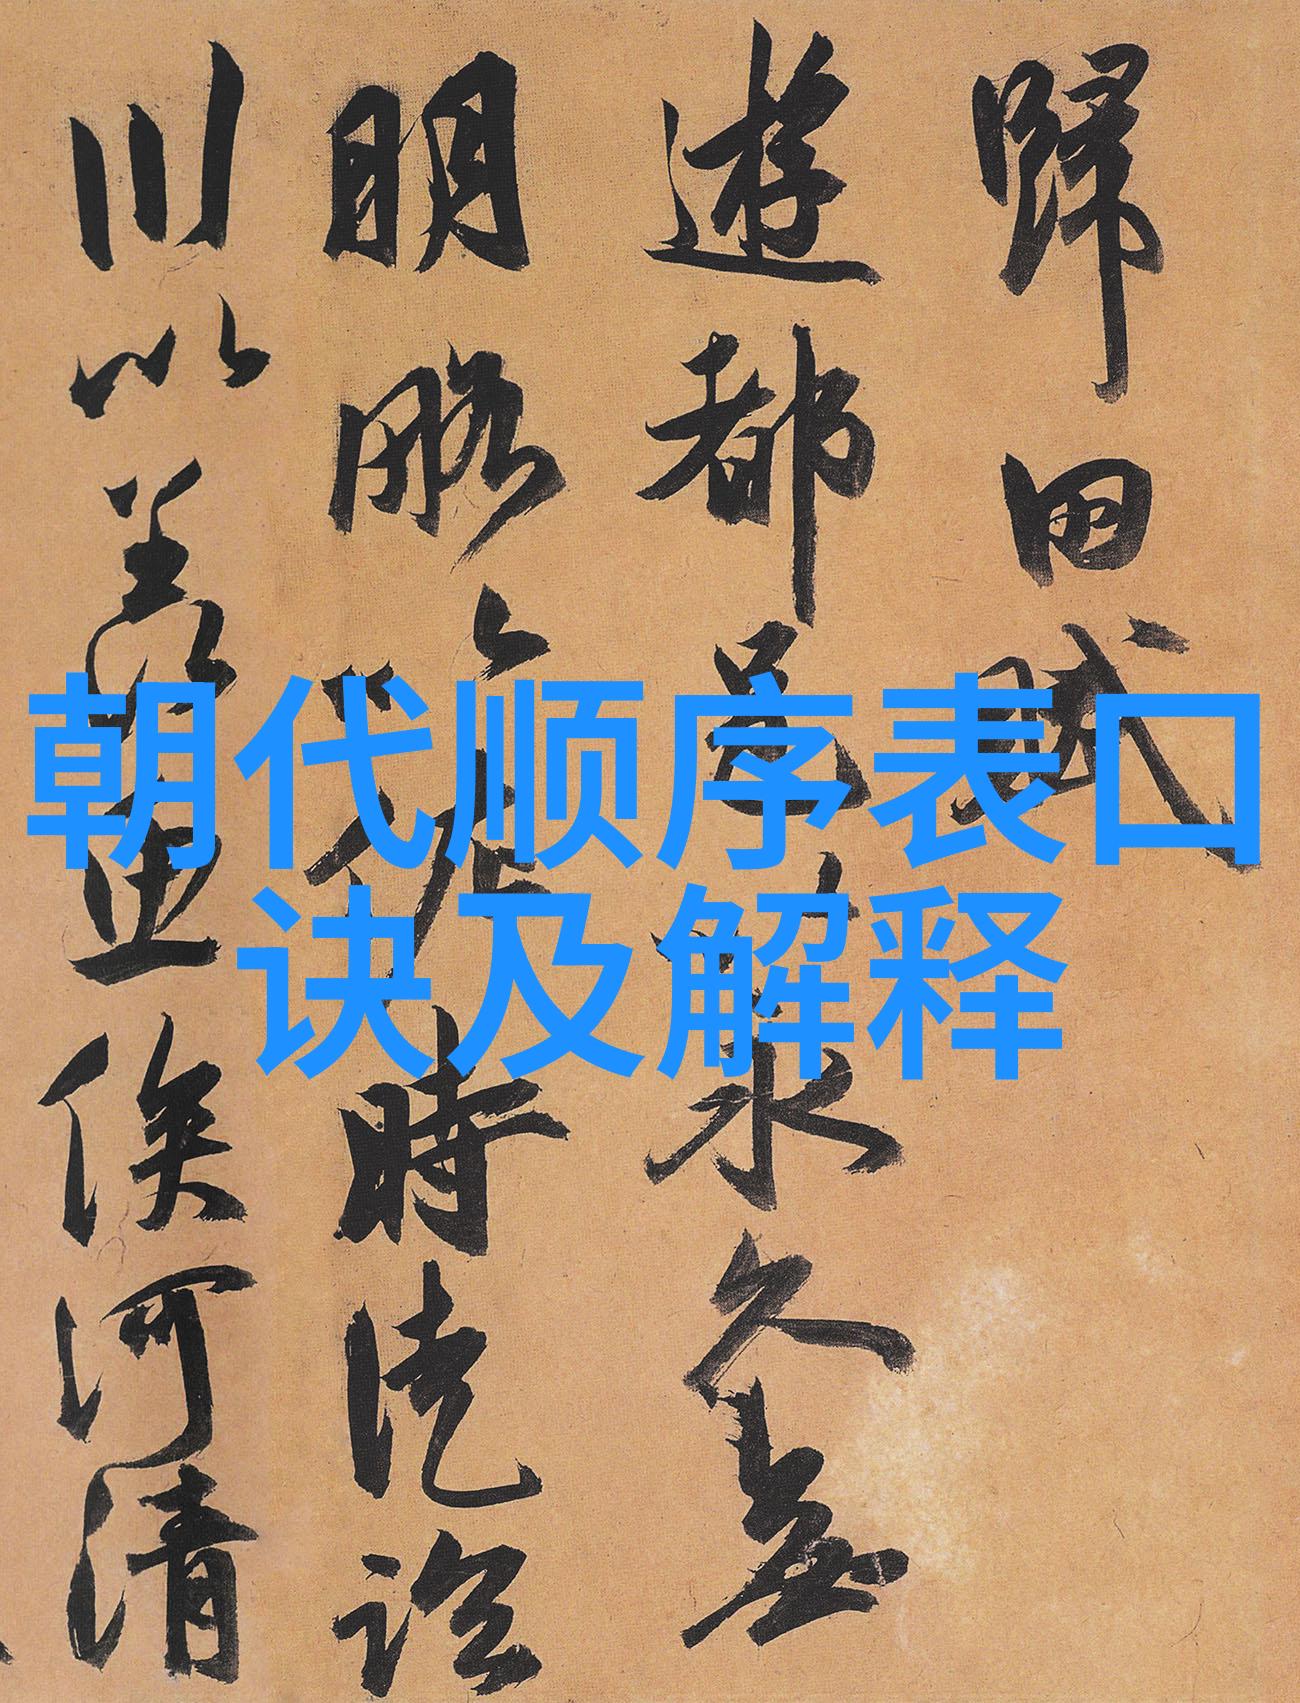 朝代顺序表口
诀及解释
歸田賦
遊都邑以永久無
明略以佐時徒臨
川以羨魚俟河清